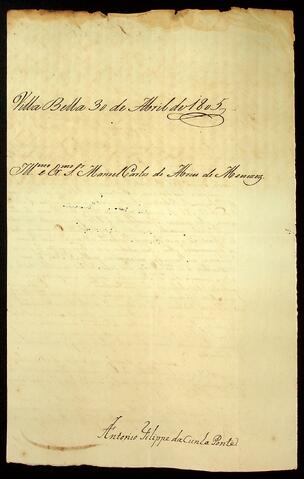 Villa Bella 30 de Abril de 1805
Ill.mo e Ex.mo S.r Manuel Carlos de Abreu de Menezes
Antonio Filippe da Cunha Ponte